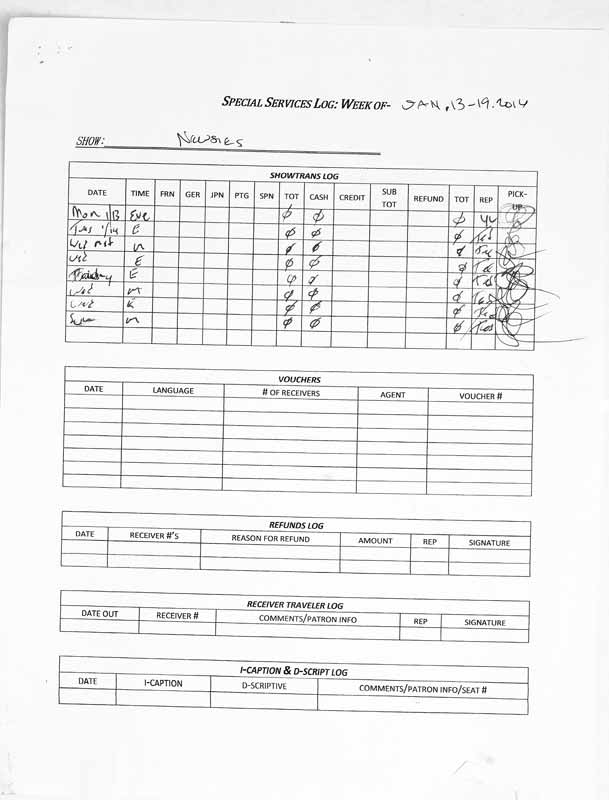 SPECIAL SERVICES LOG: WEEK OF- JAN, 13-19.2014
SHOW: NEWSIES
SHOWTRANS LOG
DATE TIME FRN GER JPN PTG SPN TOT CASH CREDIT SUB TOT REFUND TOT REP PICK-UP
Mon 1/13 Eve ϕ ϕ ϕ
Tues 1/14 E ϕ ϕ ϕ Ted
Wed mat M ϕ ϕ ϕ
Wed E ϕ ϕ ϕ
E ϕ ϕ ϕ Ted
M ϕ ϕ ϕ Ted
ϕ ϕ ϕ
Sun M ϕ ϕ ϕ Ted
VOUCHERS
DATE LANGUAGE # OF RECEIVERS AGENT VOUCHER #
REFUNDS LOG
DATE RECEIVER #'S REASON FOR REFUND AMOUNT REP SIGNATURE
RECEIVER TRAVELER LOG
DATE OUT RECEIVER # COMMENTS/PATRON INFO REP SIGNATURE
I-CAPTION & D-SCRIPT LOG
DATE I-CAPTION D-SCRIPTIVE COMMENTS/PATRON INFO/SEAT #